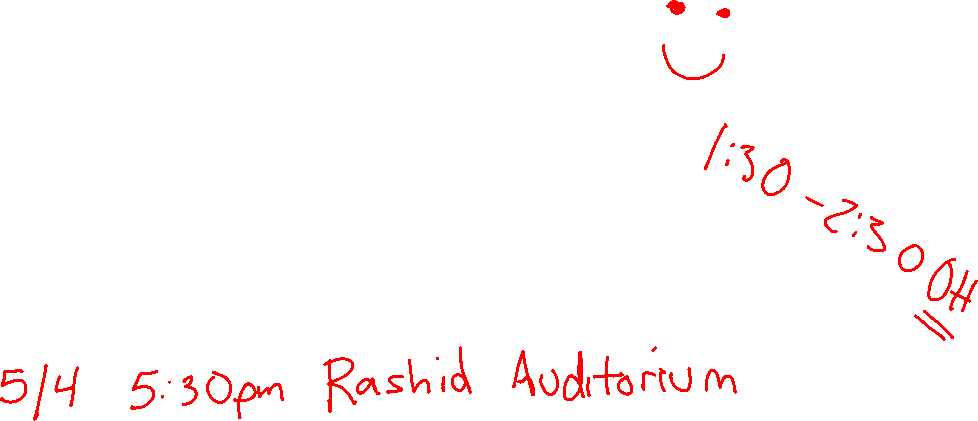 1:30 - 2:30 OH
5/4 5:30pm Rashid Auditorium